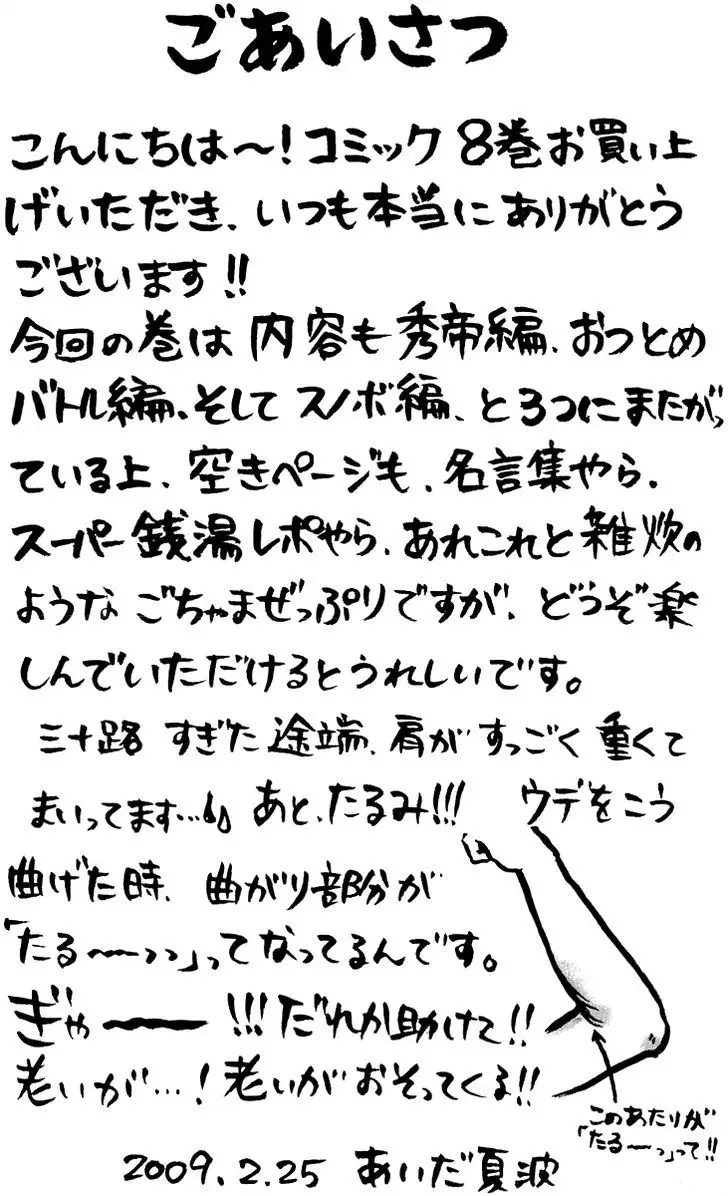 ごあいさつ
こんにちは～!コミック 8巻お買い上
げいただき、いつも本当にありがとう
ございます!!
今回の巻は 内容も秀帝編、おつとめ
バトル編、そして スノボ編、と3つにまたがっ
ている上、空きページも、名言集やら、
スーパー銭湯レポやら、あれこれと雑炊の
ような ごちゃまぜっぷりですが、どうぞ楽
しんでいただけるとうれしいです。
三十路 すぎた途端、肩が すっごく 重くて
まいってます…。あと、たるみ!!! ウデをこう
曲げた時、曲がり部分が
「たる～～っっ」ってなってるんです。
ぎゃーー!!!だれか助けて!!
老いが…!老いがおそってくる!!
このあたりが
「たる～っ」って!!
2009.2.25 あいだ夏波